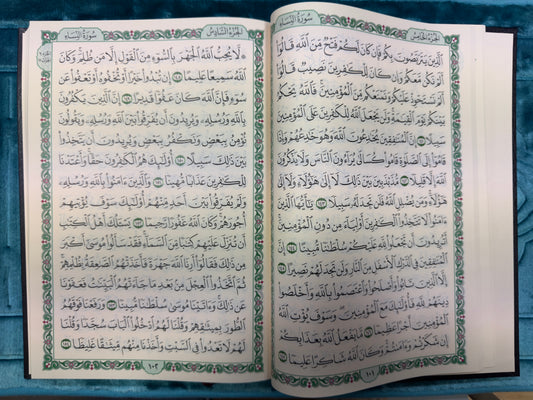 الجُزْءُ الخَامِسُ
سُورَةُ النِّسَاءِ
ٱلَّذِينَ يَتَرَبَّصُونَ بِكُمْ فَإِن كَانَ لَكُمْ فَتْحٌ مِّنَ ٱللَّهِ قَالُوٓاْ
أَلَمْ نَكُن مَّعَكُمْ وَإِن كَانَ لِلْكَٰفِرِينَ نَصِيبٌ قَالُوٓاْ
أَلَمْ نَسْتَحْوِذْ عَلَيْكُمْ وَنَمْنَعْكُم مِّنَ ٱلْمُؤْمِنِينَ فَٱللَّهُ يَحْكُمُ
بَيْنَكُمْ يَوْمَ ٱلْقِيَٰمَةِ وَلَن يَجْعَلَ ٱللَّهُ لِلْكَٰفِرِينَ عَلَى ٱلْمُؤْمِنِينَ
سَبِيلًا ١٤١ إِنَّ ٱلْمُنَٰفِقِينَ يُخَٰدِعُونَ ٱللَّهَ وَهُوَ خَٰدِعُهُمْ وَإِذَا
قَامُوٓاْ إِلَى ٱلصَّلَوٰةِ قَامُواْ كُسَالَىٰ يُرَآءُونَ ٱلنَّاسَ وَلَا يَذْكُرُونَ
ٱللَّهَ إِلَّا قَلِيلًا ١٤٢ مُّذَبْذَبِينَ بَيْنَ ذَٰلِكَ لَآ إِلَىٰ هَٰٓؤُلَآءِ وَلَآ إِلَىٰ
هَٰٓؤُلَآءِ وَمَن يُضْلِلِ ٱللَّهُ فَلَن تَجِدَ لَهُۥ سَبِيلًا ١٤٣ يَٰٓأَيُّهَا ٱلَّذِينَ
ءَامَنُواْ لَا تَتَّخِذُواْ ٱلْكَٰفِرِينَ أَوْلِيَآءَ مِن دُونِ ٱلْمُؤْمِنِينَ
أَتُرِيدُونَ أَن تَجْعَلُواْ لِلَّهِ عَلَيْكُمْ سُلْطَٰنًا مُّبِينًا ١٤٤ إِنَّ
ٱلْمُنَٰفِقِينَ فِي ٱلدَّرْكِ ٱلْأَسْفَلِ مِنَ ٱلنَّارِ وَلَن تَجِدَ لَهُمْ نَصِيرًا ١٤٥
إِلَّا ٱلَّذِينَ تَابُواْ وَأَصْلَحُواْ وَٱعْتَصَمُواْ بِٱللَّهِ وَأَخْلَصُواْ
دِينَهُمْ لِلَّهِ فَأُوْلَٰٓئِكَ مَعَ ٱلْمُؤْمِنِينَ وَسَوْفَ يُؤْتِ ٱللَّهُ
ٱلْمُؤْمِنِينَ أَجْرًا عَظِيمًا ١٤٦ مَّا يَفْعَلُ ٱللَّهُ بِعَذَابِكُمْ
إِن شَكَرْتُمْ وَءَامَنتُمْ وَكَانَ ٱللَّهُ شَاكِرًا عَلِيمًا ١٤٧
١٠١
الجُزْءُ السَّادِسُ
سُورَةُ النِّسَاءِ
۞ لَّا يُحِبُّ ٱللَّهُ ٱلْجَهْرَ بِٱلسُّوٓءِ مِنَ ٱلْقَوْلِ إِلَّا مَن ظُلِمَ وَكَانَ
ٱللَّهُ سَمِيعًا عَلِيمًا ١٤٨ إِن تُبْدُواْ خَيْرًا أَوْ تُخْفُوهُ أَوْ تَعْفُواْ عَن
سُوٓءٍ فَإِنَّ ٱللَّهَ كَانَ عَفُوًّا قَدِيرًا ١٤٩ إِنَّ ٱلَّذِينَ يَكْفُرُونَ
بِٱللَّهِ وَرُسُلِهِۦ وَيُرِيدُونَ أَن يُفَرِّقُواْ بَيْنَ ٱللَّهِ وَرُسُلِهِۦ وَيَقُولُونَ
نُؤْمِنُ بِبَعْضٍ وَنَكْفُرُ بِبَعْضٍ وَيُرِيدُونَ أَن يَتَّخِذُواْ
بَيْنَ ذَٰلِكَ سَبِيلًا ١٥٠ أُوْلَٰٓئِكَ هُمُ ٱلْكَٰفِرُونَ حَقًّا وَأَعْتَدْنَا
لِلْكَٰفِرِينَ عَذَابًا مُّهِينًا ١٥١ وَٱلَّذِينَ ءَامَنُواْ بِٱللَّهِ وَرُسُلِهِۦ
وَلَمْ يُفَرِّقُواْ بَيْنَ أَحَدٍ مِّنْهُمْ أُوْلَٰٓئِكَ سَوْفَ يُؤْتِيهِمْ
أُجُورَهُمْ وَكَانَ ٱللَّهُ غَفُورًا رَّحِيمًا ١٥٢ يَسْـَٔلُكَ أَهْلُ ٱلْكِتَٰبِ
أَن تُنَزِّلَ عَلَيْهِمْ كِتَٰبًا مِّنَ ٱلسَّمَآءِ فَقَدْ سَأَلُواْ مُوسَىٰٓ أَكْبَرَ
مِن ذَٰلِكَ فَقَالُوٓاْ أَرِنَا ٱللَّهَ جَهْرَةً فَأَخَذَتْهُمُ ٱلصَّٰعِقَةُ بِظُلْمِهِمْ
ثُمَّ ٱتَّخَذُواْ ٱلْعِجْلَ مِنۢ بَعْدِ مَا جَآءَتْهُمُ ٱلْبَيِّنَٰتُ فَعَفَوْنَا
عَن ذَٰلِكَ وَءَاتَيْنَا مُوسَىٰ سُلْطَٰنًا مُّبِينًا ١٥٣ وَرَفَعْنَا فَوْقَهُمُ
ٱلطُّورَ بِمِيثَٰقِهِمْ وَقُلْنَا لَهُمُ ٱدْخُلُواْ ٱلْبَابَ سُجَّدًا وَقُلْنَا
لَهُمْ لَا تَعْدُواْ فِي ٱلسَّبْتِ وَأَخَذْنَا مِنْهُم مِّيثَٰقًا غَلِيظًا ١٥٤
١٠٢